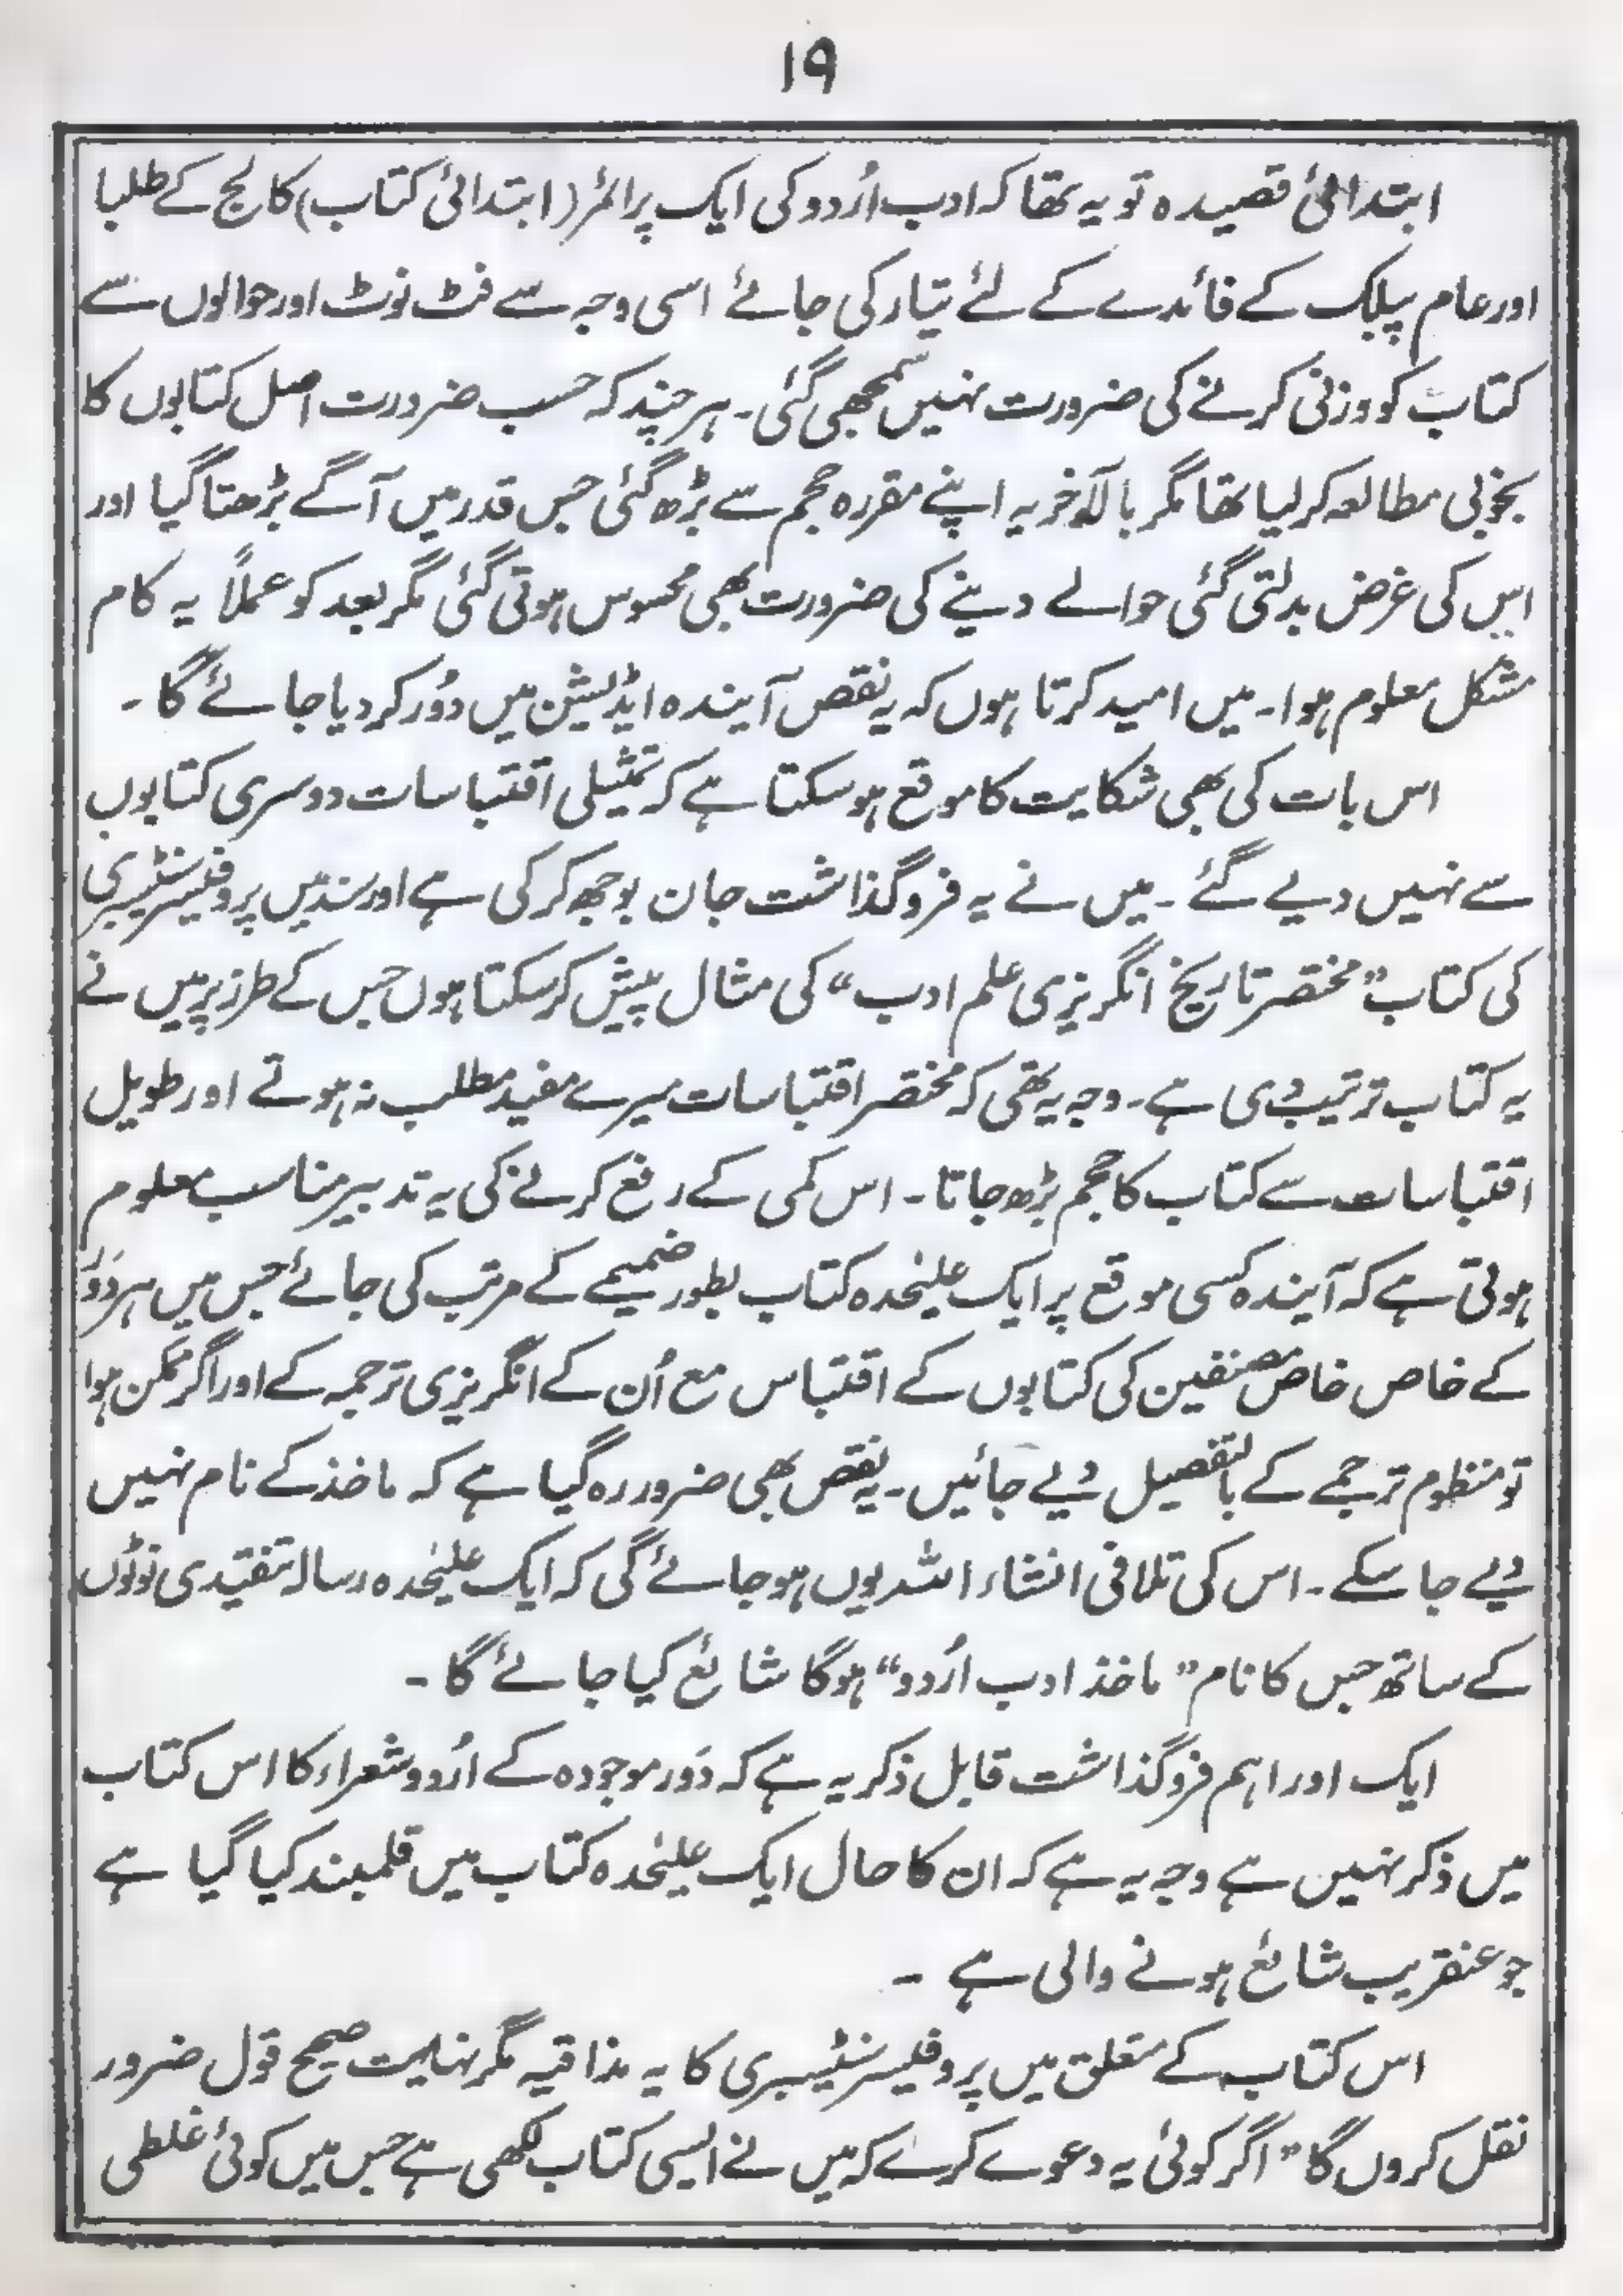 ۱۹
ابتدائی قصیدہ تو یہ تھا کہ ادب اُردو کی ایک پرائمر (ابتدائی کتاب) کالج کے طلبا
اور عام پبلک کے فائدے کے لئے تیار کی جائے اسی وجہ سے فٹ نوٹ اور حوالوں سے
کتاب کو وزنی کرنے کی ضرورت نہیں سمجھی گئی۔ ہر چند کہ حسب ضرورت اصل کتابوں کا
بخوبی مطالعہ کر لیا تھا مگر بالآخر یہ اپنے مقررہ حجم سے بڑھ گئی جس قدر میں آگے بڑھتا گیا اور
اس کی غرض بدلتی گئی حوالے دینے کی ضرورت بھی محسوس ہوتی گئی مگر بعد کو عملاً یہ کام
مشکل معلوم ہوا۔ میں امید کرتا ہوں کہ یہ نقص آیندہ ایڈیشن میں دُور کر دیا جائے گا۔
اس بات کی بھی شکایت کا موقع ہو سکتا ہے کہ تمثیلی اقتباسات دوسری کتابوں
سے نہیں دیے گئے ۔ میں نے یہ فروگذاشت جان بوجھ کر کی ہے اور سند میں پروفیسر سنٹیسبری
کی کتاب "مختصر تاریخ انگریزی علم ادب" کی مثال پیش کر سکتا ہوں جس کے طرز پر میں نے
یہ کتاب ترتیب دی ہے۔ وجہ یہ تھی کہ مختصر اقتباسات میرے مفید مطلب نہ ہوتے اور طویل
اقتباسات سے کتاب کا حجم بڑھ جاتا۔ اس کمی کے رفع کرنے کی یہ تدبیر مناسب معلوم
ہوتی ہے کہ آیندہ کسی موقع پر ایک علیٰحدہ کتاب بطور ضمیمے کے مرتب کی جائے جس میں ہر دَور
کے خاص خاص مصنفین کی کتابوں کے اقتباس مع اُن کے انگریزی ترجمہ کے اور اگر ممکن ہوا
تو منظوم ترجمے کے بالتفصیل دیے جائیں۔ یہ نقص بھی ضرور رہ گیا ہے کہ ماخذ کے نام نہیں
دیے جا سکے ۔ اس کی تلافی انشاء اللہ یوں ہو جائے گی کہ ایک علیٰحدہ رسالہ تنقیدی نوٹوں
کے ساتھ جس کا نام "ماخذ ادب اُردو" ہوگا شائع کیا جائے گا۔
ایک اور اہم فروگذاشت قابل ذکر یہ ہے کہ دَور موجودہ کے اُردو شعراء کا اس کتاب
میں ذکر نہیں ہے وجہ یہ ہے کہ ان کا حال ایک علیٰحدہ کتاب میں قلمبند کیا گیا ہے
جو عنقریب شائع ہونے والی ہے ۔
اس کتاب کے متعلق میں پروفیسر سنٹیسبری کا یہ مذاقیہ مگر نہایت صحیح قول ضرور
نقل کروں گا "اگر کوئی یہ دعوے کرے کہ میں نے ایسی کتاب لکھی ہے جس میں کوئی غلطی